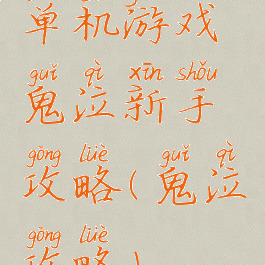 单机游戏
guǐ qì xīn shǒu
鬼泣新手
gōng lüè guǐ qì
攻略(鬼泣
gōng lüè
攻略)